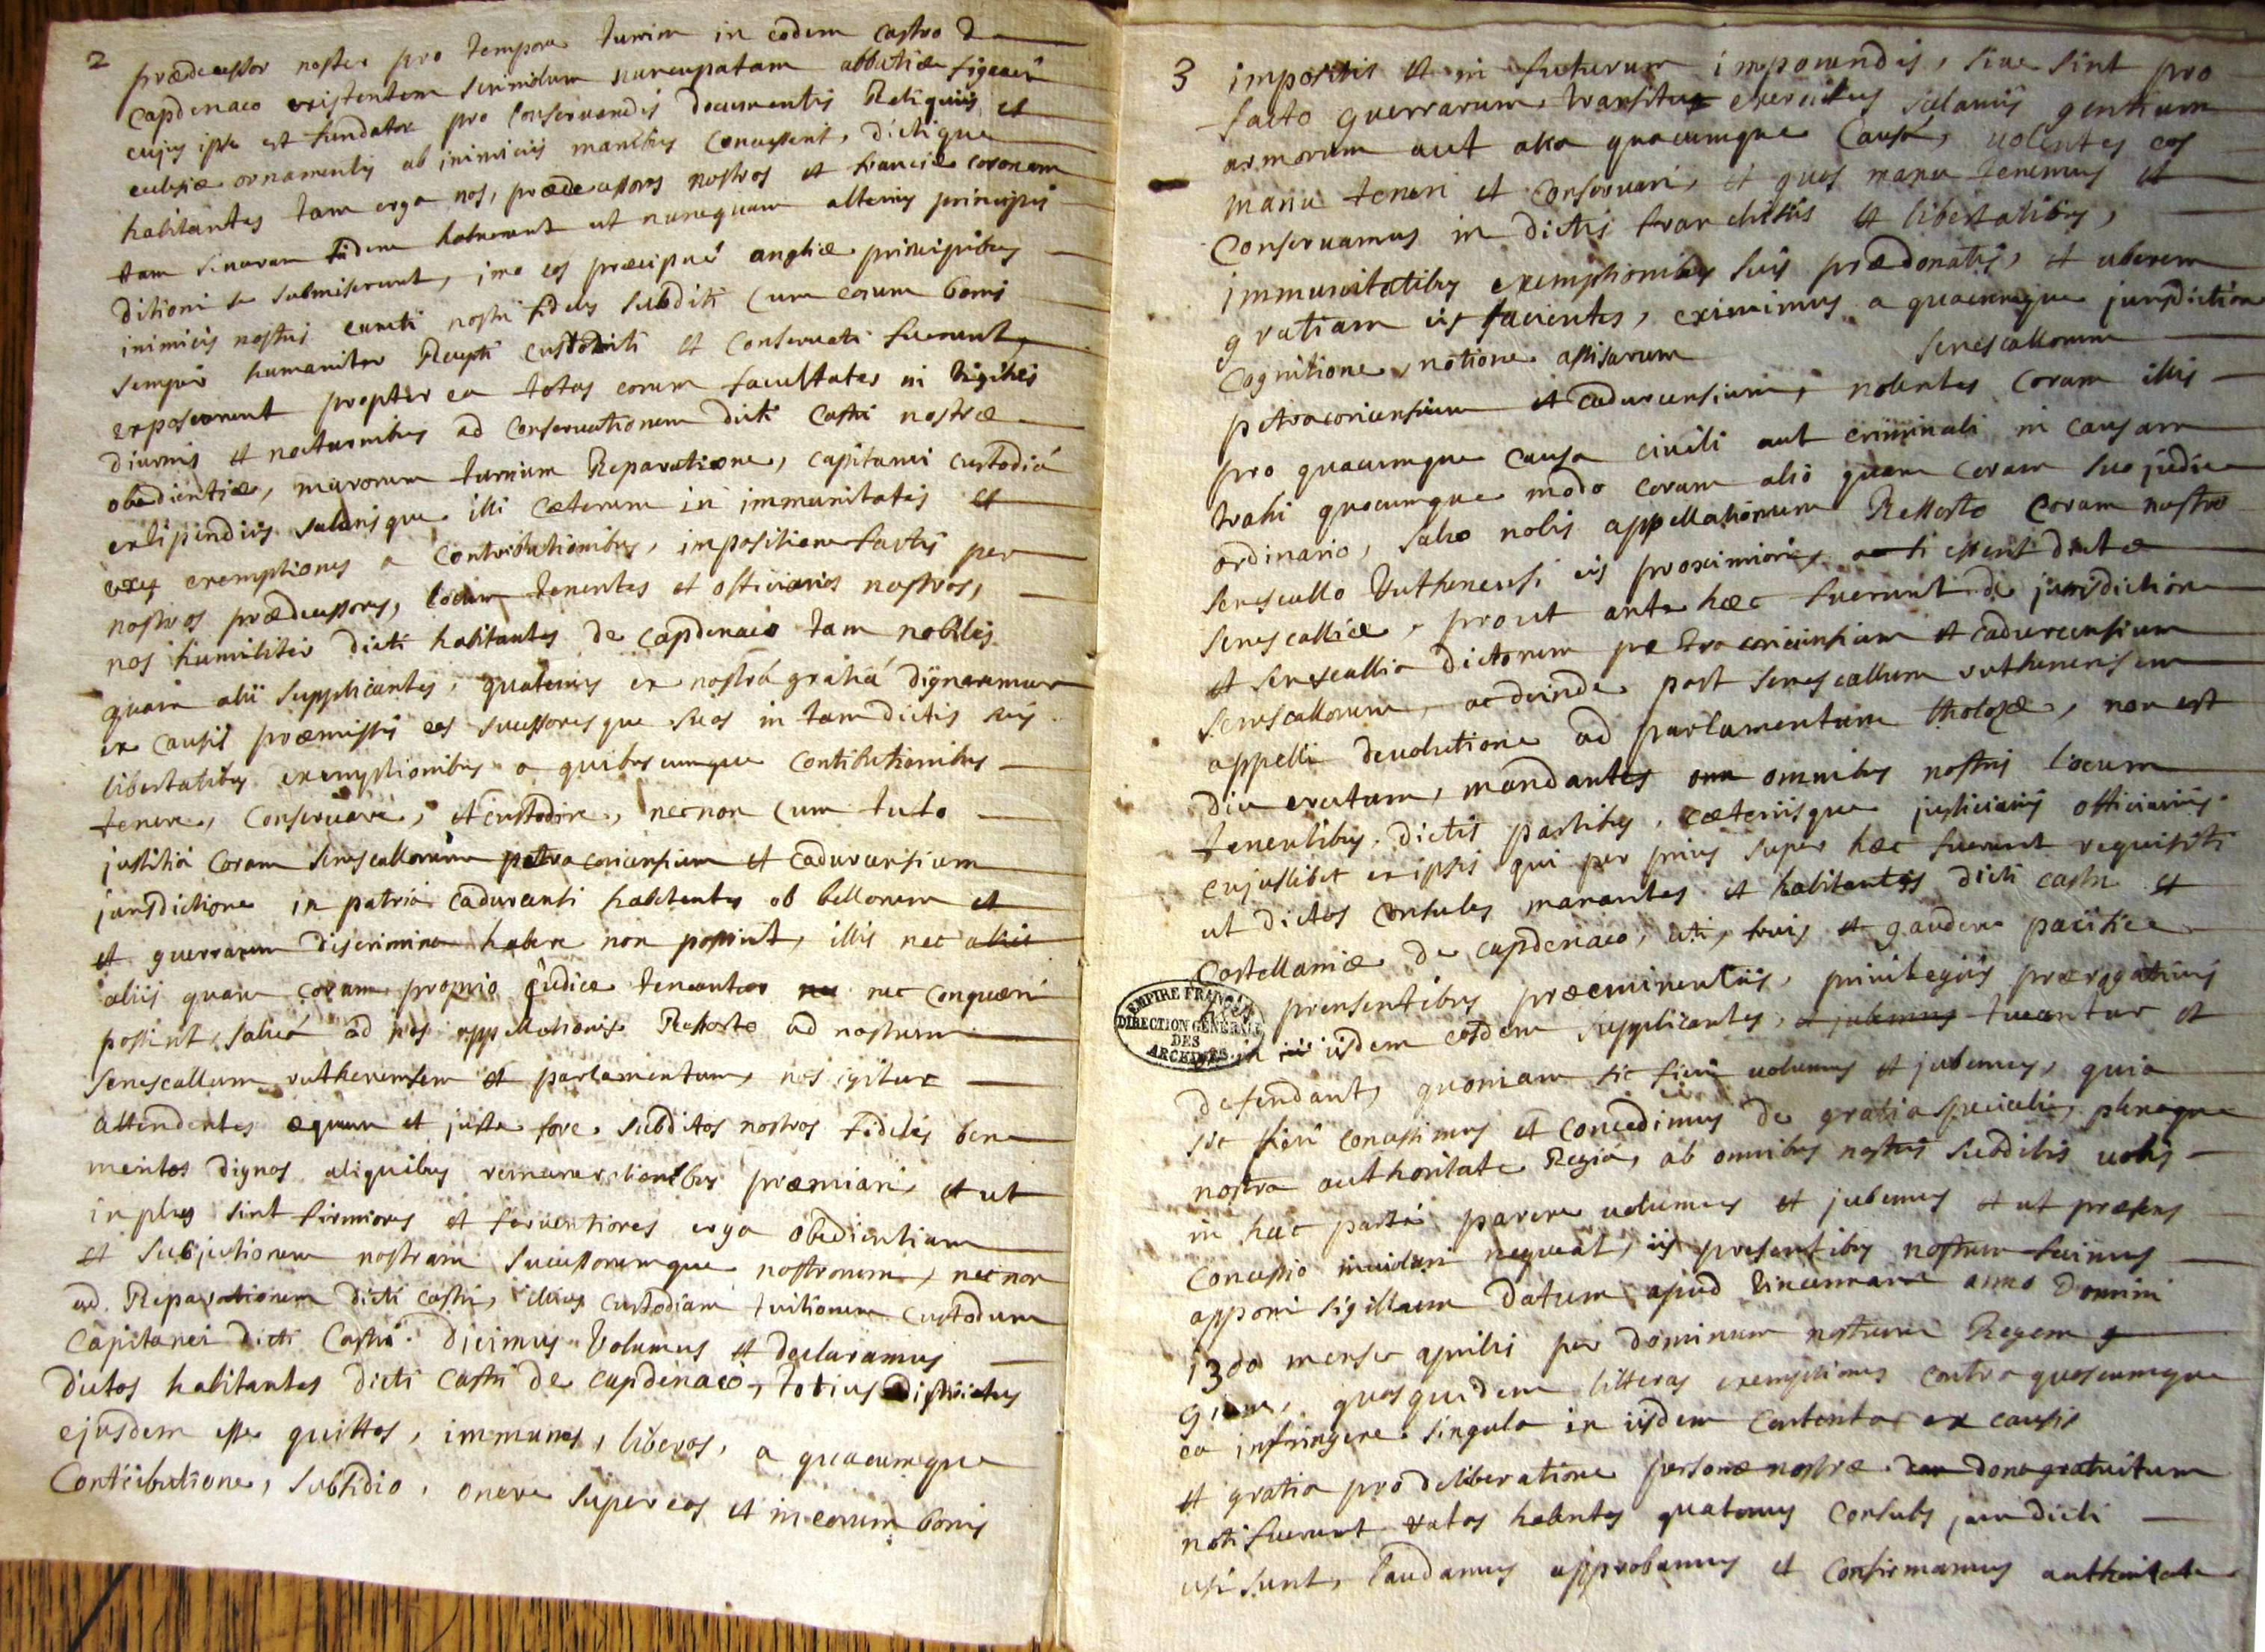 2
prædecessor noster pro tempore turrim in eodem castro d
Capdenaco existentem nuncupatam abbatiæ figeaci
cujus ipse est fundator pro conservandis documentis Reliquiis et
eclesiæ ornamentis ab inimicis manibus concesserit, dictique
habitantes tam erga nos, prædecessores nostros et franciæ coronam
tam sinceram fidem habuerunt ut nunquam alterius principis
ditioni se submiserunt, imo eos præcipue angliæ principibus
inimicis nostris cuncti nostri fideles subditi cum eorum bonis
semper humaniter Recepti custoditi et conservati fuerunt,
exposuerunt propter ea totas eorum facultates in vigiliis
diurnis et nocturnibus ad conservationem dicti castri nostræ
obedientiæ, murorum turrium Reparatione, capitanei custodiá
extipendiis salariisque illi cæterum in immunitatis et
exemptiones a contributionibus, impositione factis per
nostros prædecessores, locum tenentes et officiarios nostros,
nos humiliter dicti habitantes de capdenaco tam nobiles
quam alii supplicantes, quatenus ex nostrá gratiá dignaremur
ex causis præmissis eos successoresque suos in tam dictis suis
libertatibus exemptionibus a quibuscumque contibutionibus
tenere, conservare, et custodire, necnon cum tuto
justitia coram senescallorum petracoricensium et cadurcensium
jurisdictione in patria cadurcensi habitentes ob bellorum et
et guerrarum discrimine habere non possint, illis nec aliis
aliis quam coram proprio judice teneantur nec nec conquæri
possint, salvá ad nos appellationis Ressorto ad nostrum
senescallum ruthenensem et parlamentum, nos igitur
attendentes æquum et juste fore subditos nostros fideles bene
meritos dignos aliquibus remunerationibus præmiari, et ut
in plus sint firmiores et ferventiores erga obedientiam
et subjectionem nostram successorumque nostrorum, necnon
ad Reparationem dicti castri, illius custodiam tuitionem custodum
capitanei dicti Castri dicimus volumus et declaramus
dictos habitantes dicti castri de capdenaco, totius districtus
ejusdem esse quittos, immunes, liberos, a quacumque
Contributione, subsidio, onere super eos et in eorum bonis
3
impositis et in futurum imponendis, sive sint pro
facto guerrarum, transitus exercitus salariis gentium
armorum aut alia quacumque causá, volentes eos
manu teneri et conservari, et quos manu tenemus et
conservamus in dictis franchisiis et libertatibus,
immunitatibus exemptionibus suis prædonatis, et uberem
gratiam iis facientes, eximimus a quacumque jurisdictione
cognitione, notione assisarum senescallorum
petracoricensium et cadurcensium, nolentes coram illis
pro quacumque causa civili aut criminali in causam
trahi quocumque modo coram alio quam coram suo judice
ordinario, salvo nobis appellationum Ressorto coram nostro
senescallo Ruthenensi iis proximiori, ac si essent dictæ
senescalliæ, prout ante hæc fuerunt de jurisdictione
et senescallia dictorum petracoricensium et cadurcensium
senescallorum, ac deinde post senescallum ruthenensem
appelli devolutione ad parlamentum tholozæ, non est
diu erectum, mandantes omn omnibus nostris locum
tenentibus dictis partibus, cæterisque justiciariis officiariis
cujuslibet ex ipsis qui per prius super hæc fuerint requisiti
ut dictos consules manantes et habitantes dicti castri et
castellaniæ de capdenaco, uti, frui, et gaudere pacifice
præsentibus præeminentiis, privilegiis prærogativis
in iis iisdem eosdem supplicantes, et jubemus tueantur et
defendant, quoniam sic fieri volumus et jubemus, quia
sic fieri concessimus et concedimus de gratia speciali, plenaque
nostra authoritate Regiá, ab omnibus nostris subditis vobis
in hac parte parere volumus et jubemus et ut præsens
concessio nequeat, iis presentibus nostrum fecimus
apponi sigillum Datum apud vincennam anno Domini
1300 mense aprilis per dominum nostrum Regem
quasquidem litteras exemptiones contra quoscumque
ea infringere singula in iisdem contenta ex causis
et gratia pro deliberatione personæ nostræ dono gratuitum
habentes quatenus consules jam dicti
usi sunt, laudamus approbamus et confirmamus authoritate
EMPIRE FRANÇAIS
DIRECTION GÉNÉRALE
DES
ARCHIVES